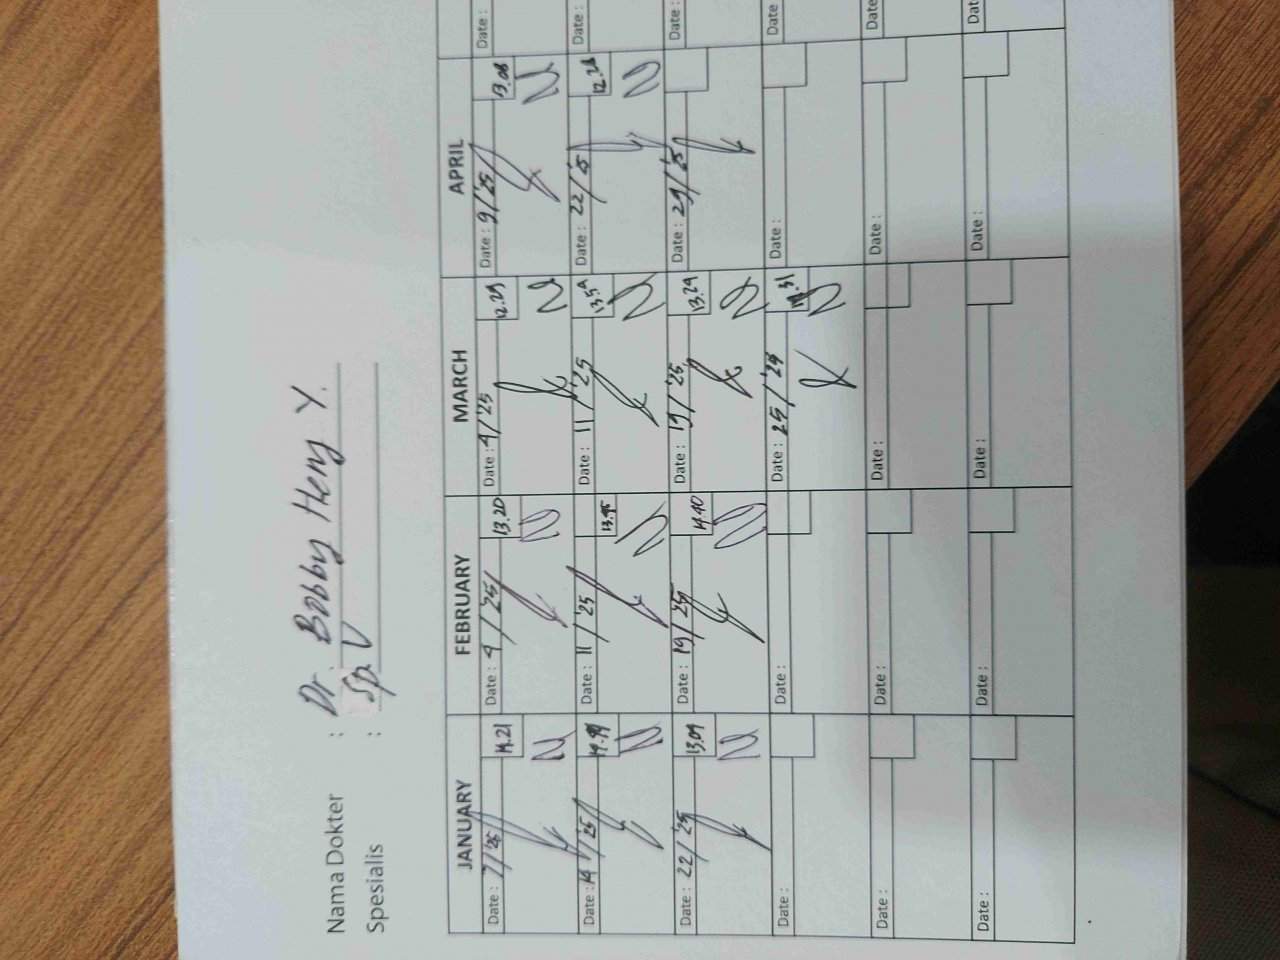 Nama Dokter : Dr. Bobby Hery Y.
Spesialis : Sp. V
JANUARY FEBRUARY MARCH APRIL
Date : 7/'25 14.21 Date : 4/'25 13.20 Date : 4/'25 12.29 Date : 9/'25 13.08 Date :
Date : 14/'25 Date : 11/'25 13.45 Date : 11/'25 Date : 22/'25 12.28 Date :
Date : 22/'25 13.09 Date : 19/'25 14.40 Date : 19/'25 13.29 Date : 29/'25 Date :
Date : Date : Date : 25/'25 Date : Date
Date : Date : Date : Date : Date
Date : Date : Date : Date : Dat